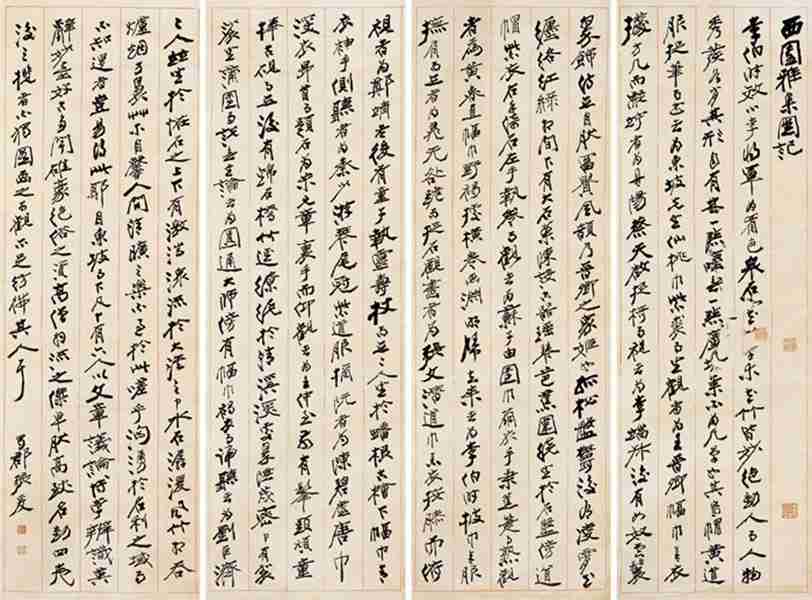 西園雅集圖記
李伯時效小李將軍為著色泉石雲物草木花竹皆妙絕動人而人物
秀發各肖其形自有林下一點塵埃氣不為凡筆也其烏帽黃道
服捉筆而書者為東坡先生仙桃巾紫裘而坐觀者為王晉卿幅巾青衣
據方几而凝竚者為丹陽蔡天啟捉椅而視者為李端叔後有女奴雲鬟
翠飾侍立自然富貴風韻乃晉卿之家姬也孤松盤鬱後有凌霄
纏絡紅綠相間下有大石案陳設古器瑤琴芭蕉圍繞坐於石盤傍道
帽紫衣右手倚石左手執卷而觀者為蘇子由團巾繭衣手秉蕉箑而熟觀
者為黃魯直幅巾野褐據橫卷畫淵明歸去來者為李伯時披巾青服
撫肩而立者為晁無咎跪而捉石觀畫者為張文潛道巾素衣按膝而俯
視者為鄭靖老後有童子執靈壽杖而立二人坐於蟠根古檜下幅巾青
衣袖手側聽者為秦少游琴尾冠紫道服摘阮者為陳碧虛唐巾
深衣昂首而題石者為米元章袖手而仰觀者為王仲至前有鬅頭頑童
捧古硯而立後有錦石橋竹逕繚繞於清溪深處翠陰茂密中有袈
裟坐蒲團而說無生論者為圓通大師傍有幅巾褐衣而諦聽者為劉巨濟
二人並坐於怪石之上下有激湍潨流於大溪之中水石潺湲風竹相吞
爐烟方裊草木自馨人間清曠之樂不過於此嗟乎洶湧於名利之域而
不知退者豈易得此耶自東坡而下凡十有六人以文章議論博學辨識英
辭妙墨好古多聞雄豪絕俗之資高僧羽流之傑卓然高致名動四夷
後之攬者不獨圖畫之可觀亦足彷彿其人耳 蜀郡張爰